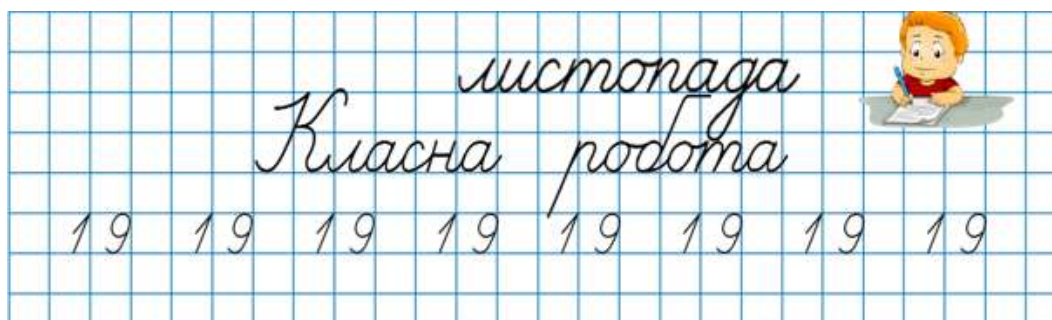 листопада
Класна робота
19 19 19 19 19 19 19 19